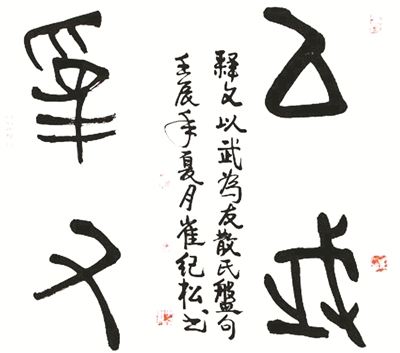 以武
為友
釋文以武為友散氏盤句
壬辰年夏月崔紀松书